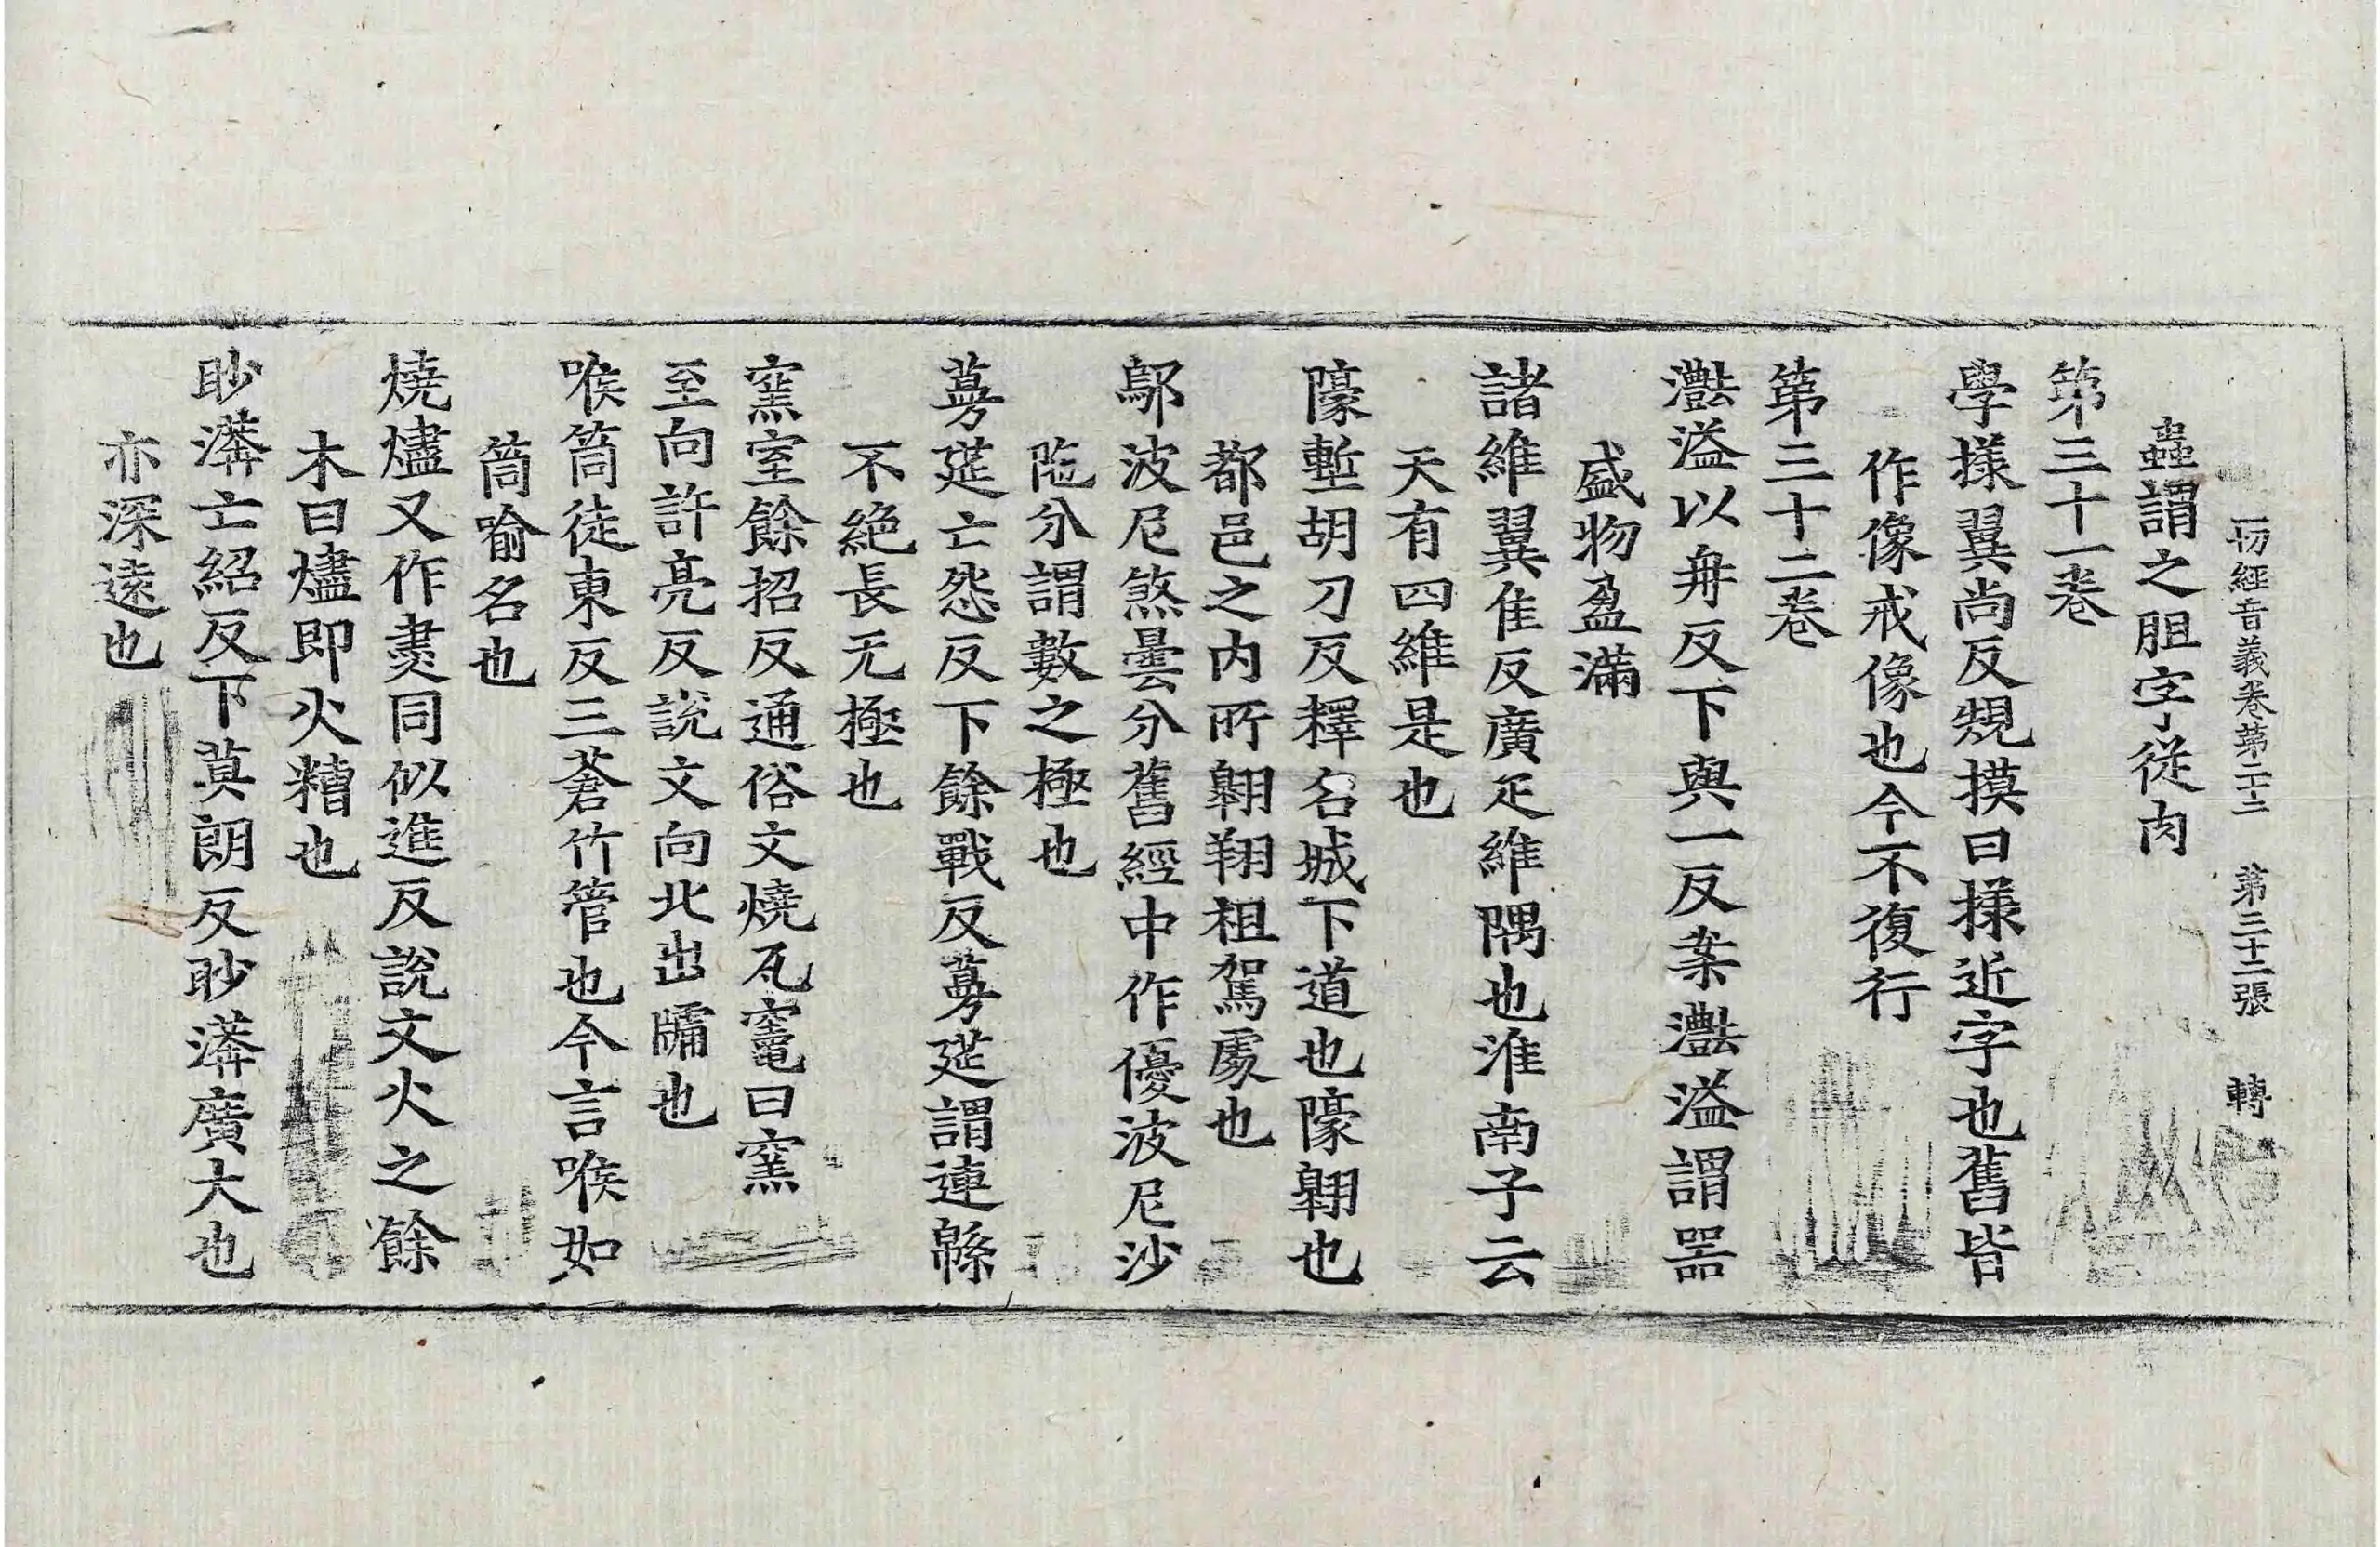 一切經音義卷第二十二 第三十二張 轉
蟲謂之胆字從肉
第三十一卷
學㨾翼尚反規摸曰㨾近字也舊皆
作像戒像也今不復行
第三十二卷
灩溢以冉反下與一反案灩溢謂器
盛物盈滿
諸維翼隹反廣疋維隅也淮南子云
天有四維是也
隊壍胡刀反釋名城下道也隊翶也
都邑之內所翶翔祖駕處也
鄔波尼煞曇分舊經中作優波尼沙
陁分謂數之極也
蔓莚亡怨反下餘戰反蔓莚謂連緜
不絕長无極也
窯室餘招反通俗文燒瓦竈曰窯
至向許亮反說文向北出牖也
喉筒徒東反三蒼竹管也今言喉如
筒喻名也
燒燼又作㶳同似進反說文火之餘
木曰燼即火糟也
眇漭亡紹反下莫朗反眇漭廣大也
亦深遠也